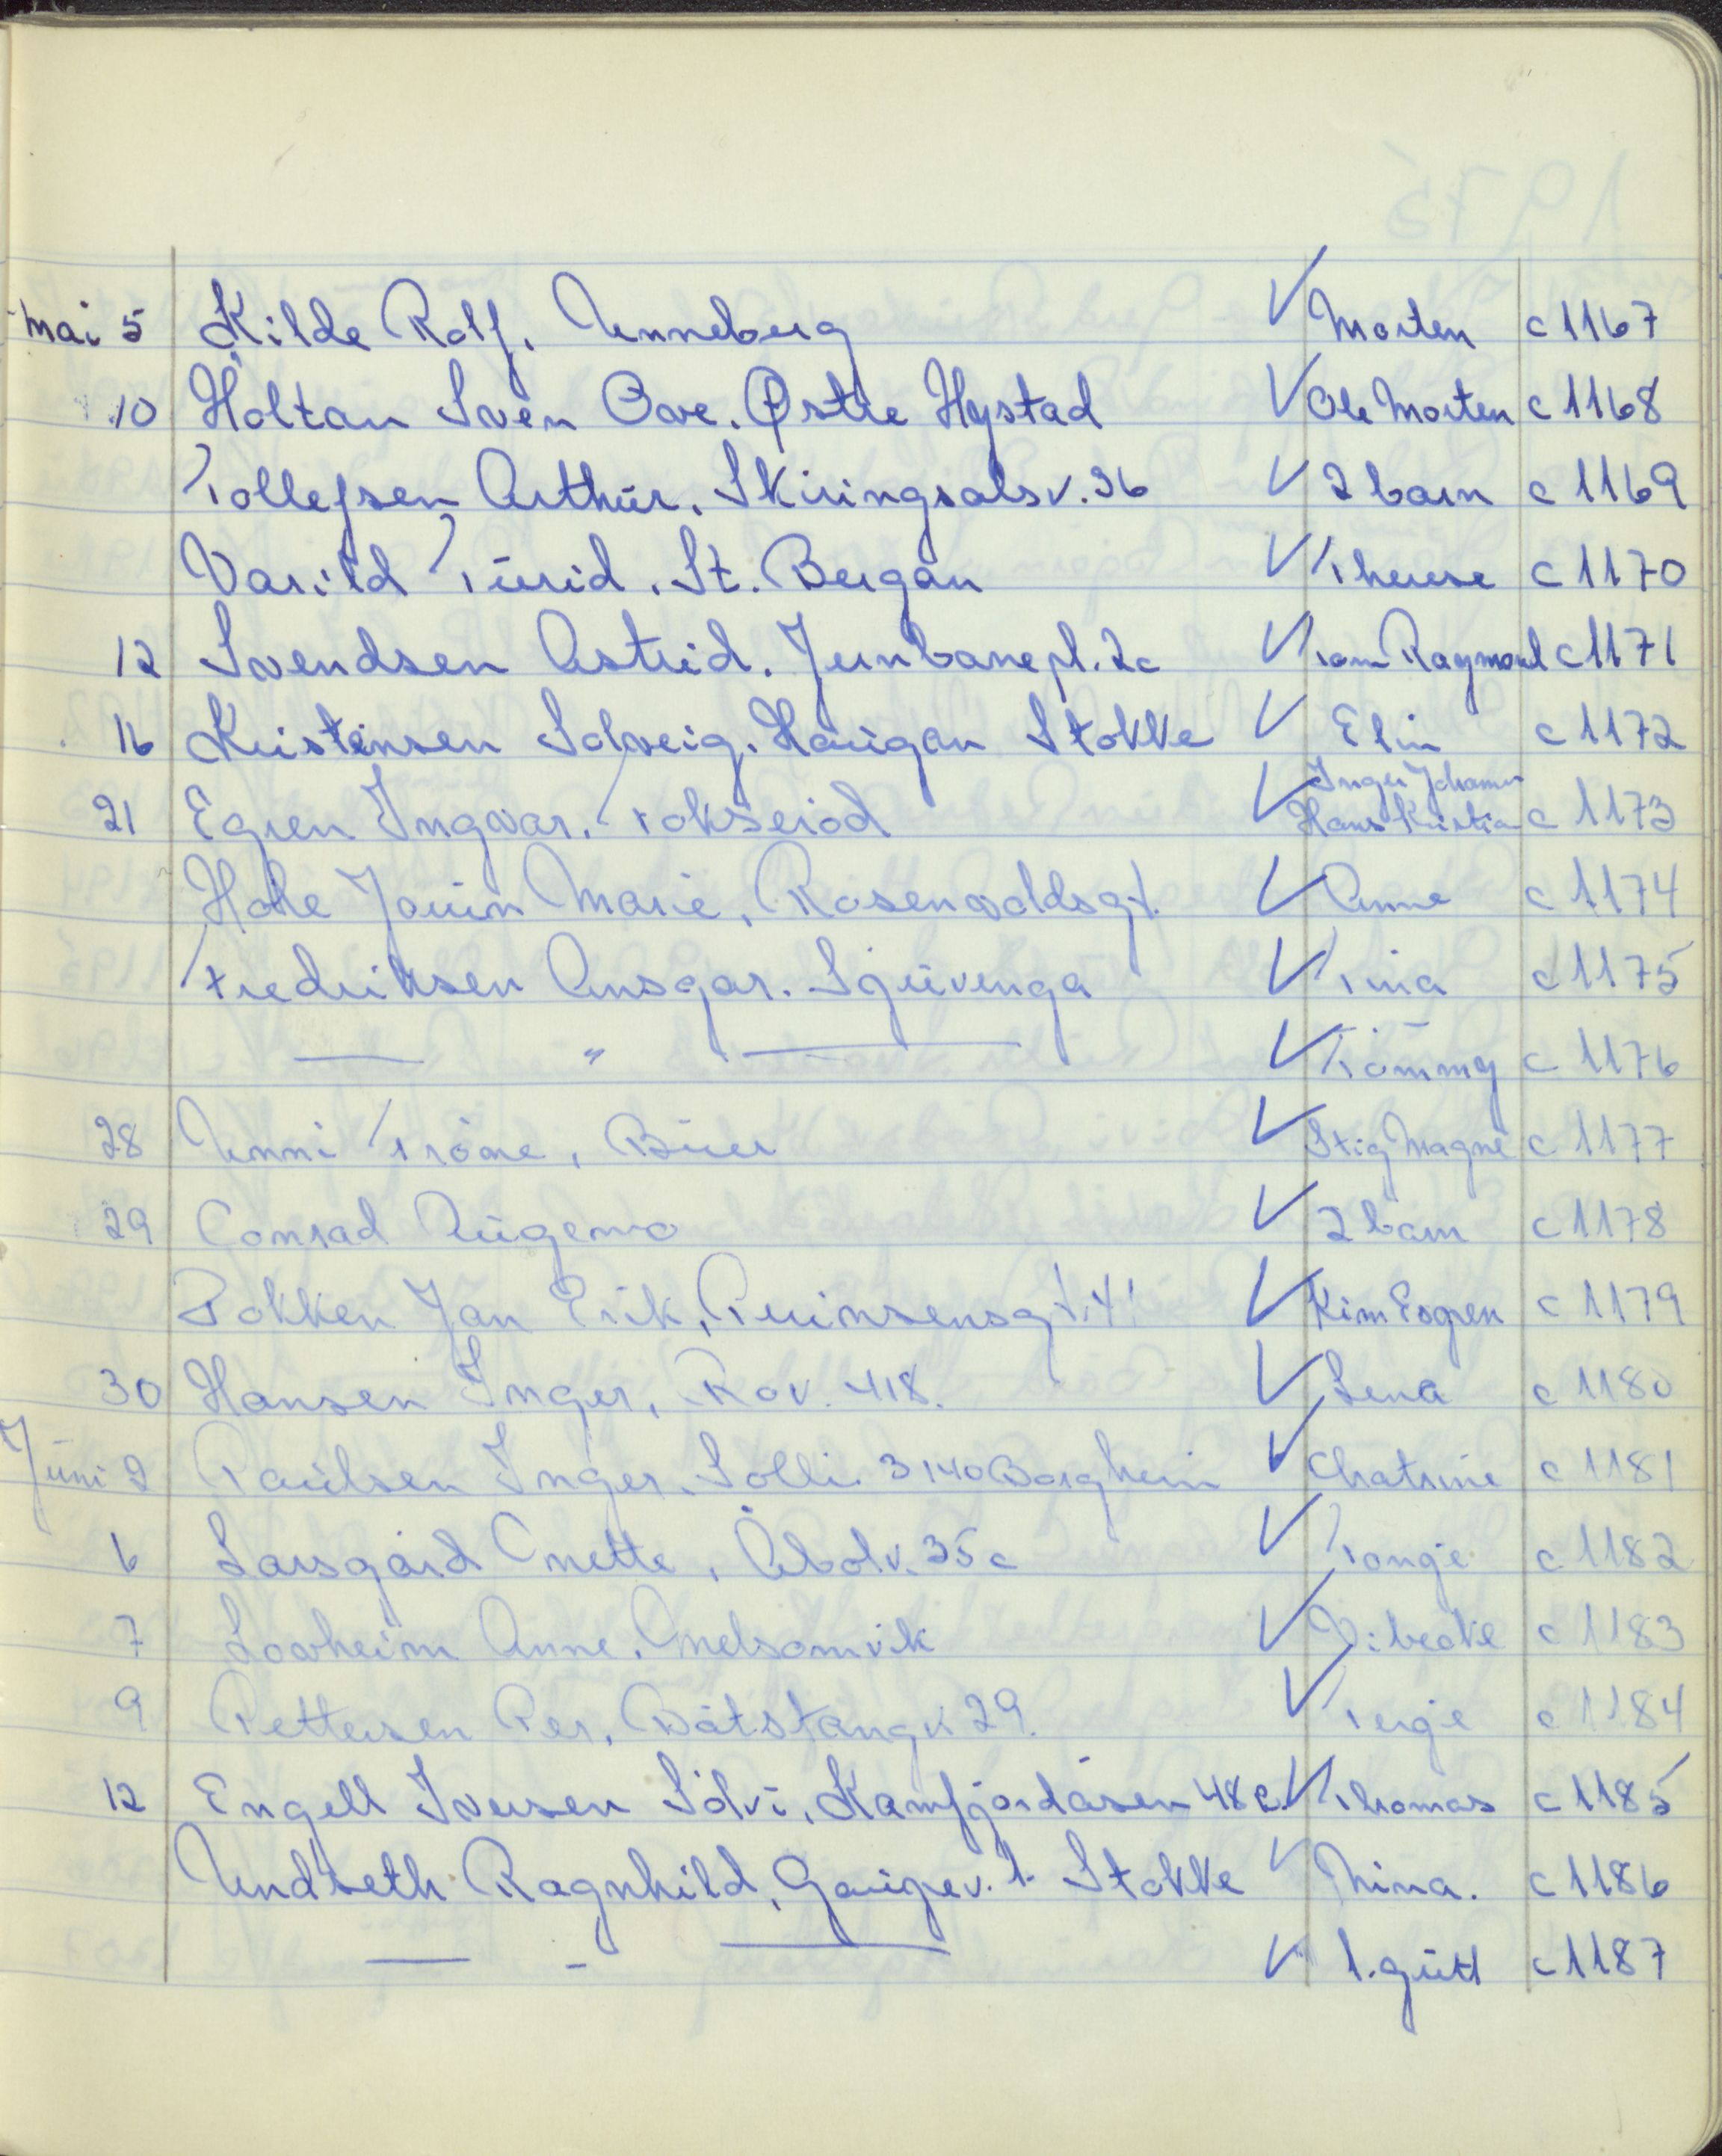 Mai 5 Kilde Rolf. Unneberg ✓ Morten c 1167
10 Holtan Sven Ove. Østre Hystad ✓ Ole Morten c 1168
Tollefsen Arthur. Skiringsalsv. 36 ✓ 2 barn c 1169
Varild Turid. St. Bergan ✓ Therese c 1170
12 Svendsen Astrid. Jernbanepl. 2c ✓ Tom Raymond c 1171
16 Kristensen Solveig. Haugan Stokke ✓ Elin c 1172
21 Egren Ingvar. Fokserød ✓ Inger Johanne Hans Kristian c 1173
Hole Marie, Rosenvoldsgt. ✓ Anne c 1174
Fredriksen Ansgar. ✓ Tina c 1175
— " — ✓ Tommy c 1176
28 Unni Trone, Buer ✓ Stig Magne c 1177
29 Conrad ✓ 2 barn c 1178
Bakken Jan Erik, Prinsensgt. 41 ✓ Kim Espen c 1179
30 Hansen Inger, Rav. 418. ✓ Lena c 1180
Juni 2 Paulsen Inger. Solli. 3140 Borgheim ✓ Chatrine c 1181
6 Larsgård Anette, Åbolv. 35c ✓ Tonje c 1182
7 Lovheim Anne. Melsomvik ✓ Vibecke c 1183
9 Pettersen Per, Båtstangv. 29. ✓ Terje c 1184
12 Engell Iversen Sölvi, Kamfjordåsen 48 c. ✓ Thomas c 1185
Undseth Ragnhild, Stokke ✓ Nina. c 1186
— - — ✓ 1. gutt c 1187